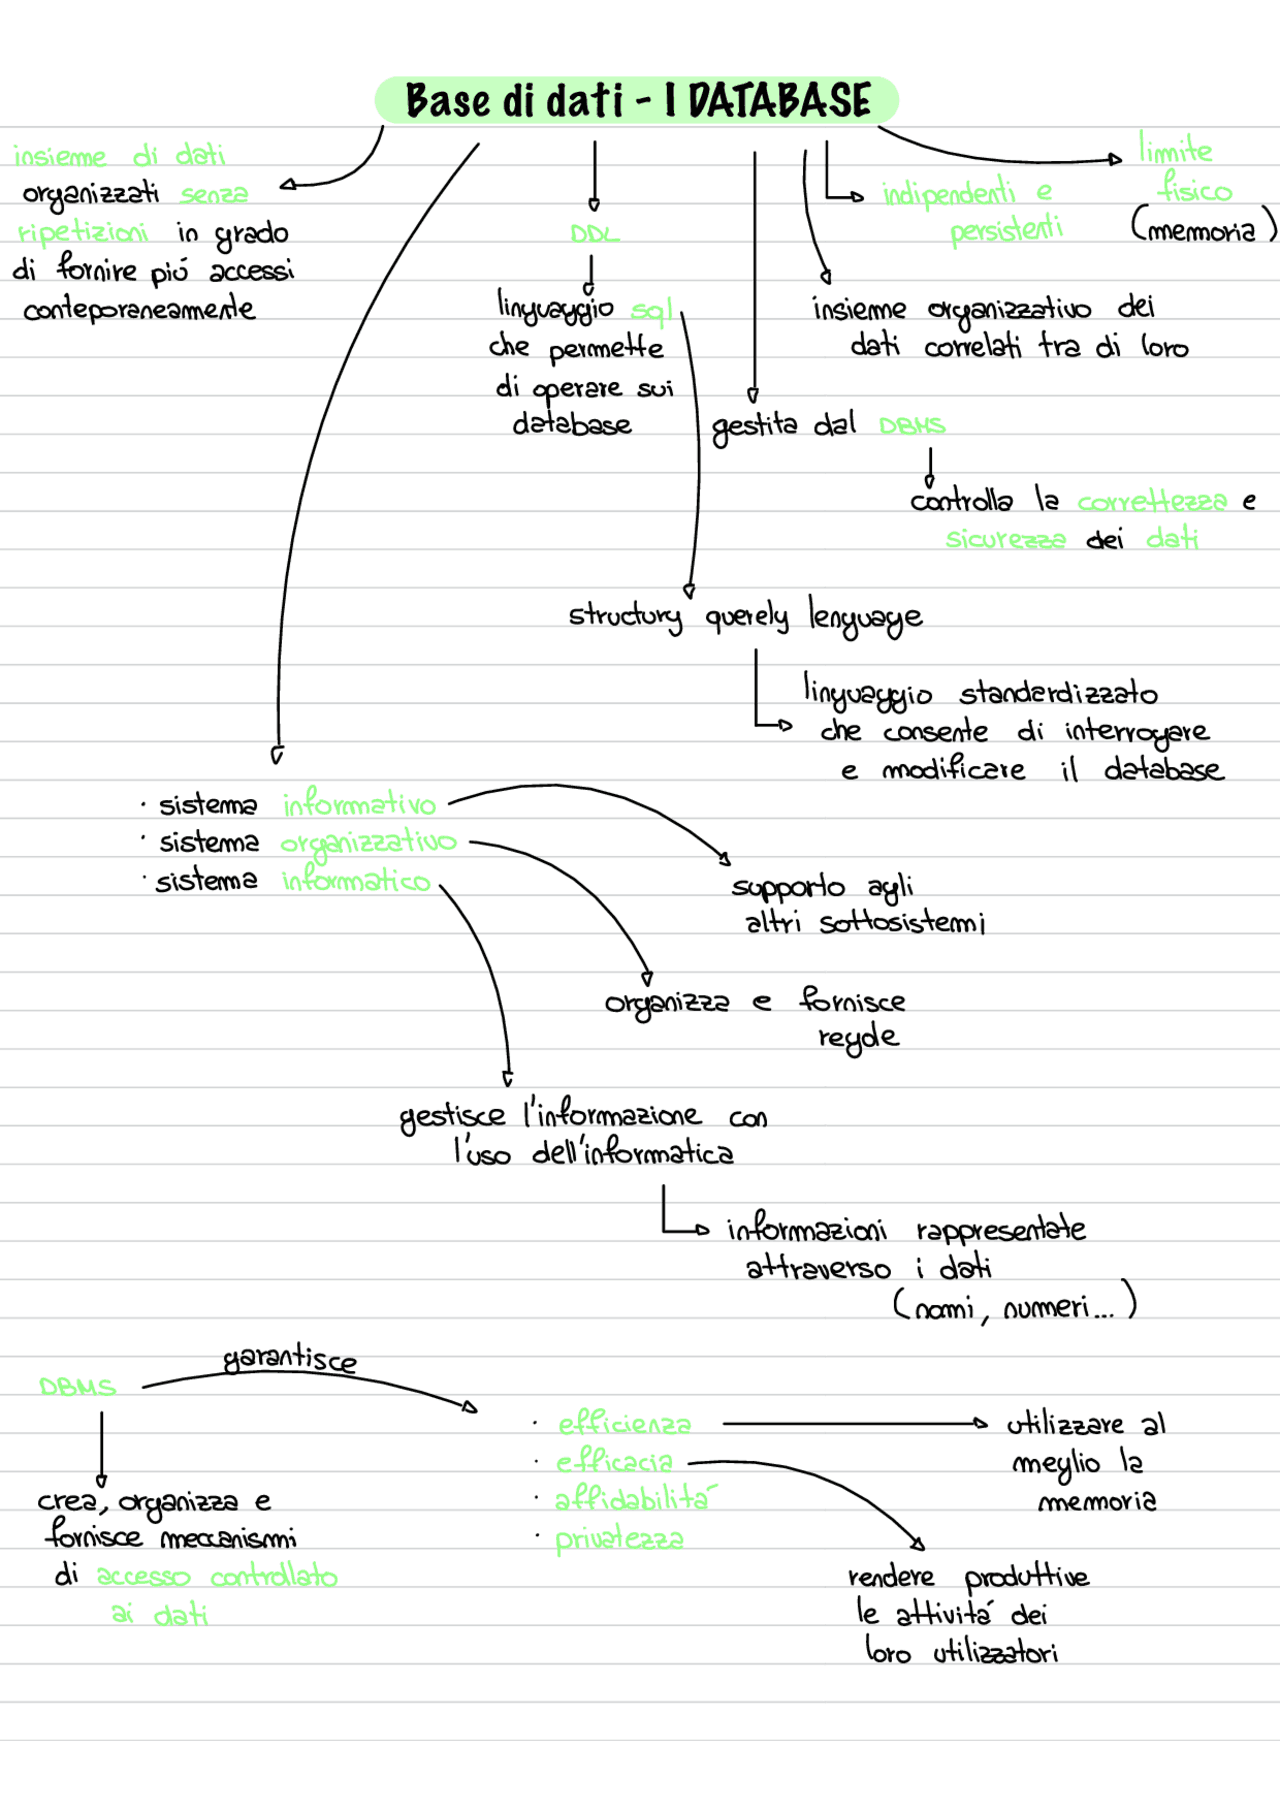 Base di dati - I DATABASE
insieme di dati
organizzati senza
ripetizioni in grado
di fornire piú accessi
conteporaneamente
DDL
linguaggio sql
che permette
di operare sui
database
indipendenti e
persistenti
limite
fisico
(memoria)
insieme organizzativo dei
dati correlati tra di loro
gestita dal DBMS
controlla la correttezza e
sicurezza dei dati
structury querely lenguage
linguaggio standerdizzato
che consente di interrogare
e modificare il database
· sistema informativo
· sistema organizzativo
· sistema informatico
supporto agli
altri sottosistemi
organizza e fornisce
regole
gestisce l'informazione con
l'uso dell'informatica
informazioni rappresentate
attraverso i dati
(nomi, numeri...)
garantisce
DBMS
crea, organizza e
fornisce meccanismi
di accesso controllato
ai dati
· efficienza
· efficacia
· affidabilitá
· privatezza
utilizzare al
meglio la
memoria
rendere produttive
le attivitá dei
loro utilizzatori